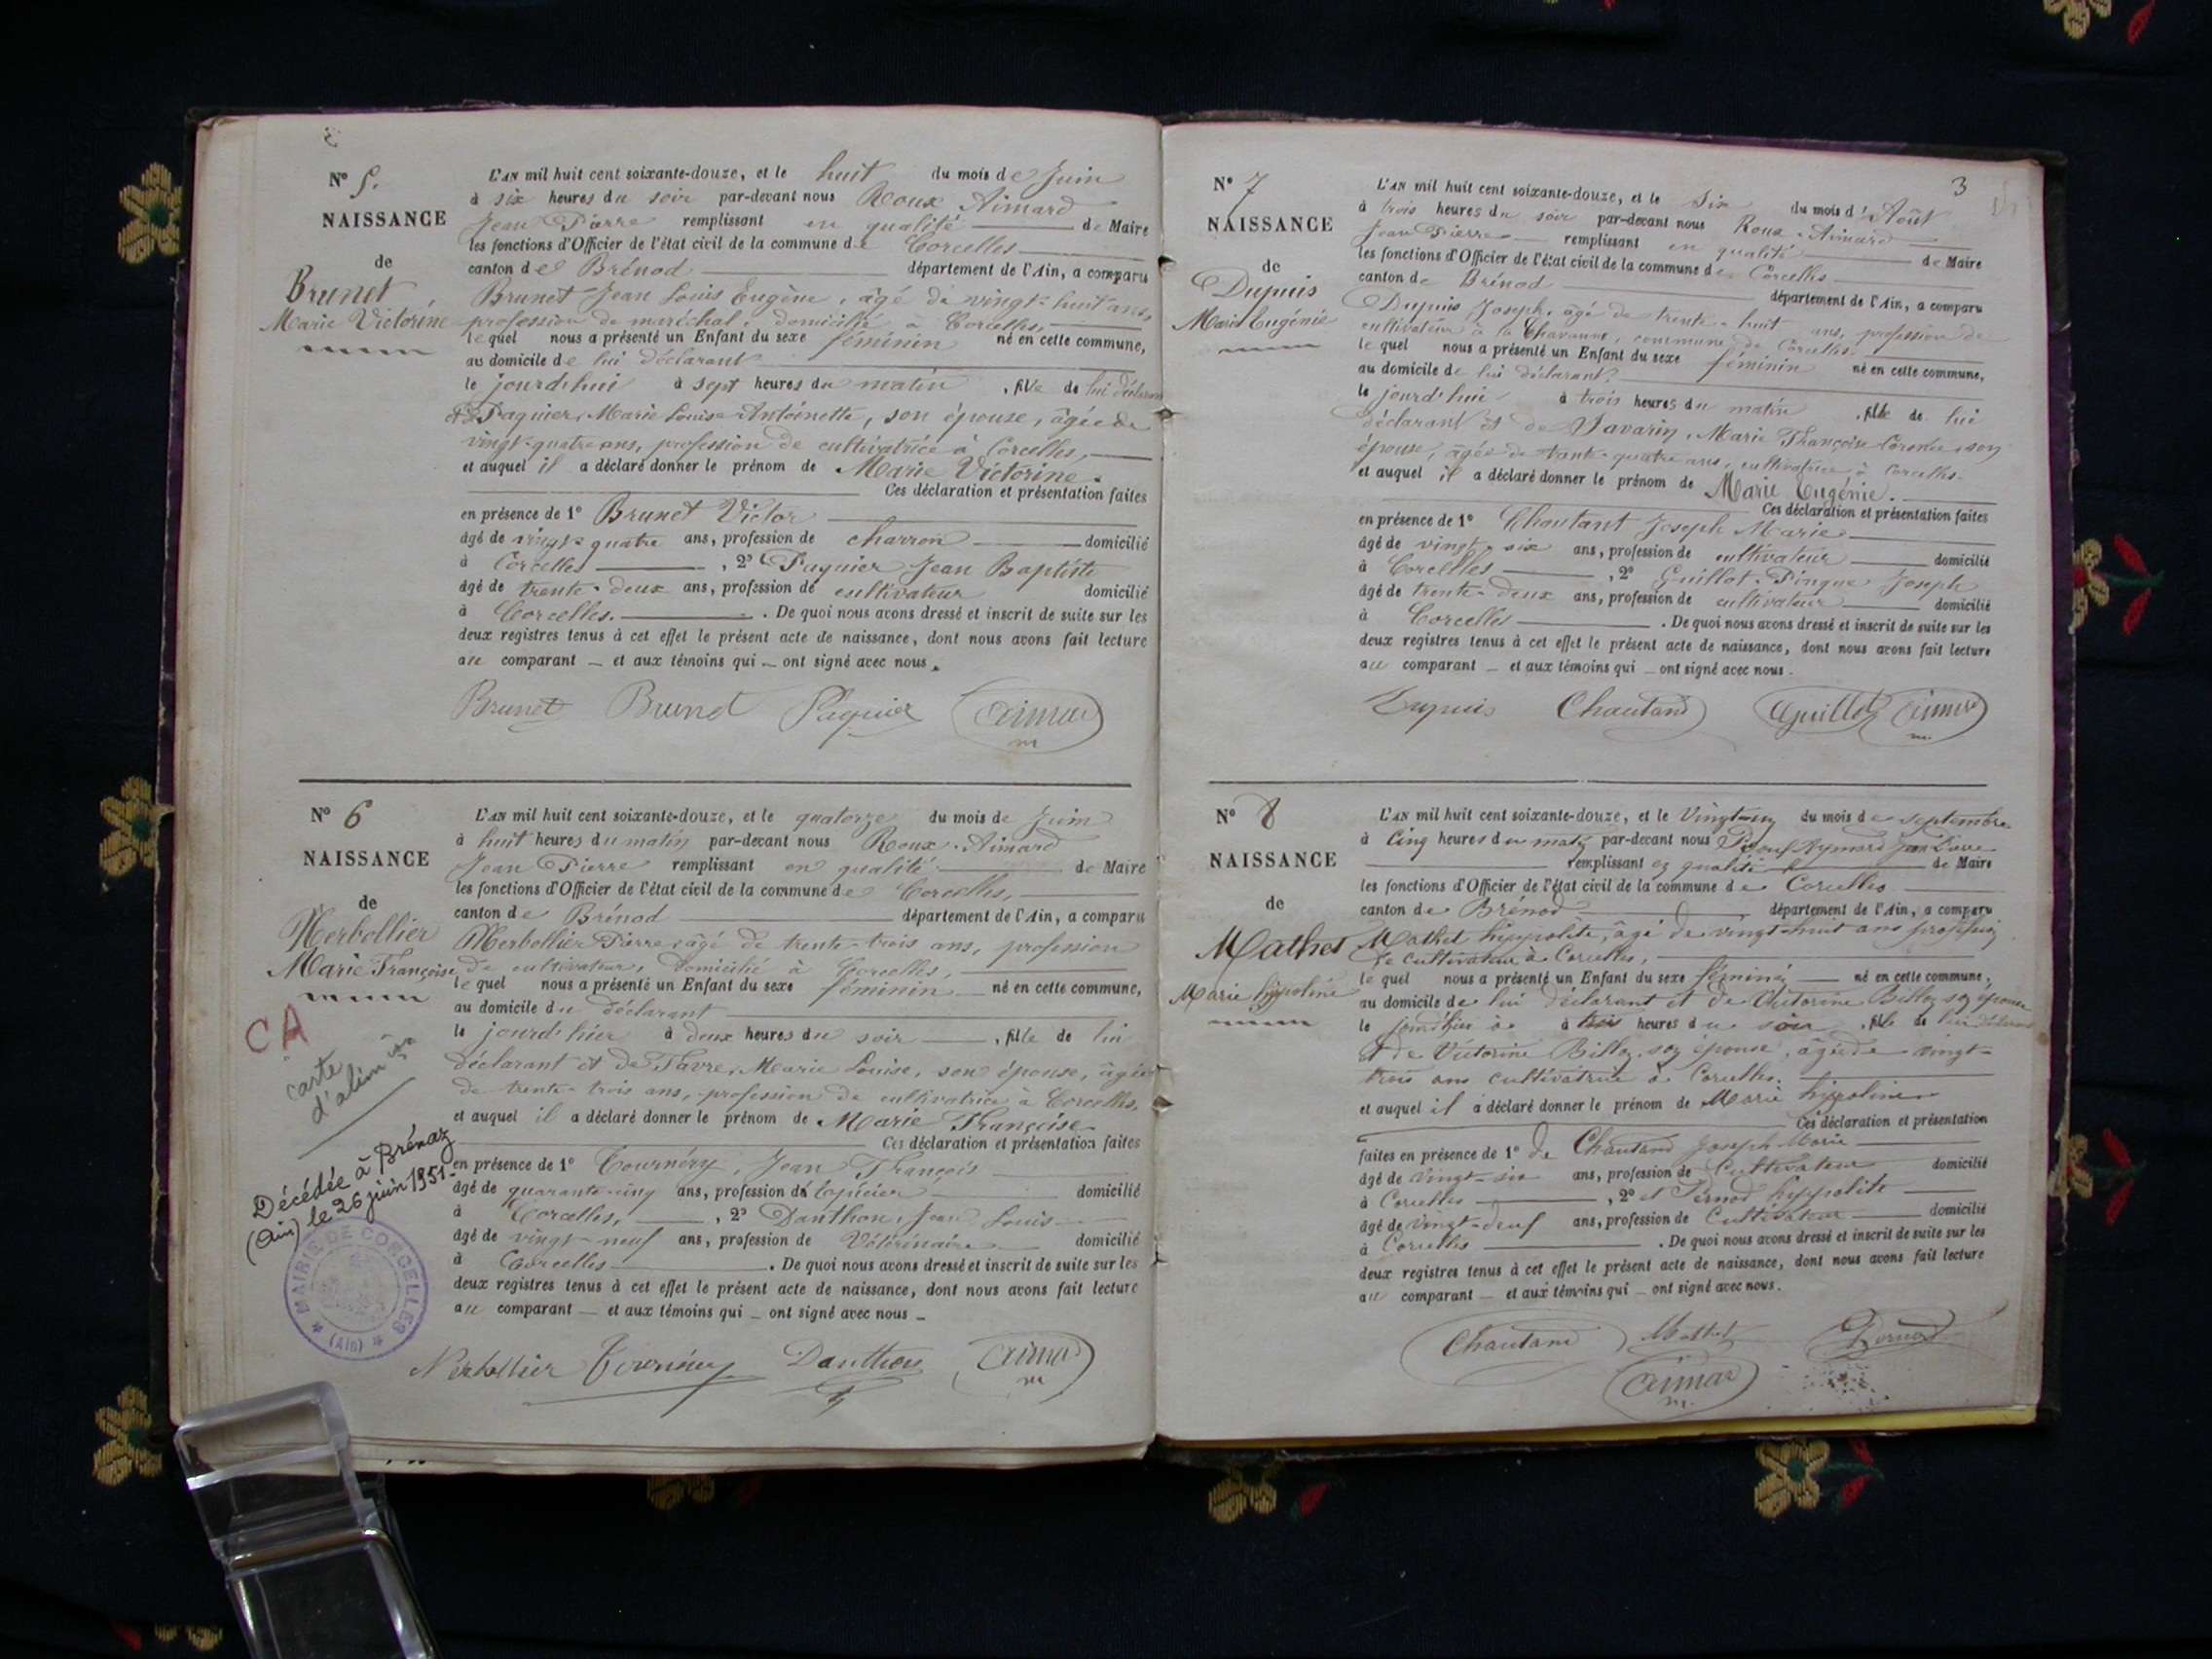 N° 5.
NAISSANCE
de
Brunet
Marie Victorine
L'AN mil huit cent soixante-douze, et le huit du mois de Juin
à six heures du soir par-devant nous Roux Aimard
Jean Pierre remplissant en qualité de Maire
les fonctions d'Officier de l'état civil de la commune de Corcelles
canton de Brénod département de l'Ain, a comparu
Brunet Jean Louis Eugène, âgé de vingt-huit ans,
profession de maréchal, domicilié à Corcelles,
lequel nous a présenté un Enfant du sexe féminin né en cette commune,
au domicile de lui déclarant
le jourd'hui à sept heures du matin, fille de lui déclarant
et Paquier, Marie Louise Antoinette, son épouse, âgée de
vingt-quatre ans, profession de cultivatrice à Corcelles,
et auquel il a déclaré donner le prénom de Marie Victorine.
Ces déclaration et présentation faites
en présence de 1° Brunet Victor
âgé de vingt-quatre ans, profession de charron domicilié
à Corcelles, 2° Paquier Jean Baptiste
âgé de trente-deux ans, profession de cultivateur domicilié
à Corcelles. De quoi nous avons dressé et inscrit de suite sur les
deux registres tenus à cet effet le présent acte de naissance, dont nous avons fait lecture
au comparant — et aux témoins qui — ont signé avec nous.
Brunet Brunet Paquier Aimard
m
N° 6
NAISSANCE
de
Marie Françoise
CA
carte
d'alim
Décédée à Brénaz
(Ain) le 26 juin 1951.
MAIRIE DE CORCELLES
(Ain)
L'AN mil huit cent soixante-douze, et le quatorze du mois de Juin
à huit heures du matin par-devant nous Roux-Aimard
Jean Pierre remplissant en qualité de Maire
les fonctions d'Officier de l'état civil de la commune de Corcelles,
canton de Brénod département de l'Ain, a comparu
Pierre, âgé de trente-trois ans, profession
de cultivateur, domicilié à Corcelles,
lequel nous a présenté un Enfant du sexe féminin né en cette commune,
au domicile du déclarant
le jourd'hier à deux heures du soir, fille de lui
déclarant et de Favre, Marie Louise, son épouse, âgée
de trente-trois ans, profession de cultivatrice à Corcelles,
et auquel il a déclaré donner le prénom de Marie Françoise.
Ces déclaration et présentation faites
en présence de 1° Tournéry, Jean François
âgé de quarante-cinq ans, profession d'épicier domicilié
à Corcelles, 2° Danthon, Jean Louis
âgé de vingt-neuf ans, profession de Vétérinaire domicilié
à Corcelles. De quoi nous avons dressé et inscrit de suite sur les
deux registres tenus à cet effet le présent acte de naissance, dont nous avons fait lecture
au comparant — et aux témoins qui — ont signé avec nous —
Tournéry Danthon Aimard
m
3
N° 7
NAISSANCE
de
Dupuis
Marie Eugénie
L'AN mil huit cent soixante-douze, et le six du mois d'Août
à trois heures du soir par-devant nous Roux-Aimard
Jean Pierre remplissant en qualité de Maire
les fonctions d'Officier de l'état civil de la commune de Corcelles
canton de Brénod département de l'Ain, a comparu
Dupuis Joseph, âgé de trente-huit ans, profession de
cultivateur à la Chavanne, commune de Corcelles,
lequel nous a présenté un Enfant du sexe féminin né en cette commune,
au domicile de lui déclarant.
le jourd'hui à trois heures du matin, fille de lui
déclarant et de Savarin, Marie Françoise son
épouse, âgée de trente-quatre ans, cultivatrice à Corcelles.
et auquel il a déclaré donner le prénom de Marie Eugénie.
Ces déclaration et présentation faites
en présence de 1° Chautant Joseph Marie
âgé de vingt-six ans, profession de cultivateur domicilié
à Corcelles, 2° Guillot-Pingue Joseph
âgé de trente-deux ans, profession de cultivateur domicilié
à Corcelles. De quoi nous avons dressé et inscrit de suite sur les
deux registres tenus à cet effet le présent acte de naissance, dont nous avons fait lecture
au comparant — et aux témoins qui — ont signé avec nous.
Dupuis Chautand Guillot Aimard
m.
N° 8
NAISSANCE
de
Mathet
Marie hyppoline
L'AN mil huit cent soixante-douze, et le Vingt-un du mois de septembre
à Cinq heures du matin par-devant nous Aymard Jean
remplissant en qualité de Maire
les fonctions d'Officier de l'état civil de la commune de Corcelles
canton de Brénod département de l'Ain, a comparu
Mathet hippolite, âgé de vingt-huit ans profession
de cultivateur à Corcelles,
lequel nous a présenté un Enfant du sexe féminin né en cette commune,
au domicile de lui déclarant et de Victorine Billon son épouse
le jourd'hier à trois heures du soir, fille de lui déclarant
et de Victorine Billon son épouse, âgée de vingt-
trois ans cultivatrice à Corcelles.
et auquel il a déclaré donner le prénom de Marie hyppoline
Ces déclaration et présentation
faites en présence de 1° de Chautand Joseph Marie
âgé de vingt-six ans, profession de Cultivateur domicilié
à Corcelles, 2° et Pernod hyppolite
âgé de vingt-neuf ans, profession de Cultivateur domicilié
à Corcelles. De quoi nous avons dressé et inscrit de suite sur les
deux registres tenus à cet effet le présent acte de naissance, dont nous avons fait lecture
au comparant — et aux témoins qui — ont signé avec nous.
Chautand Mathet Pernod
Aimard
m.